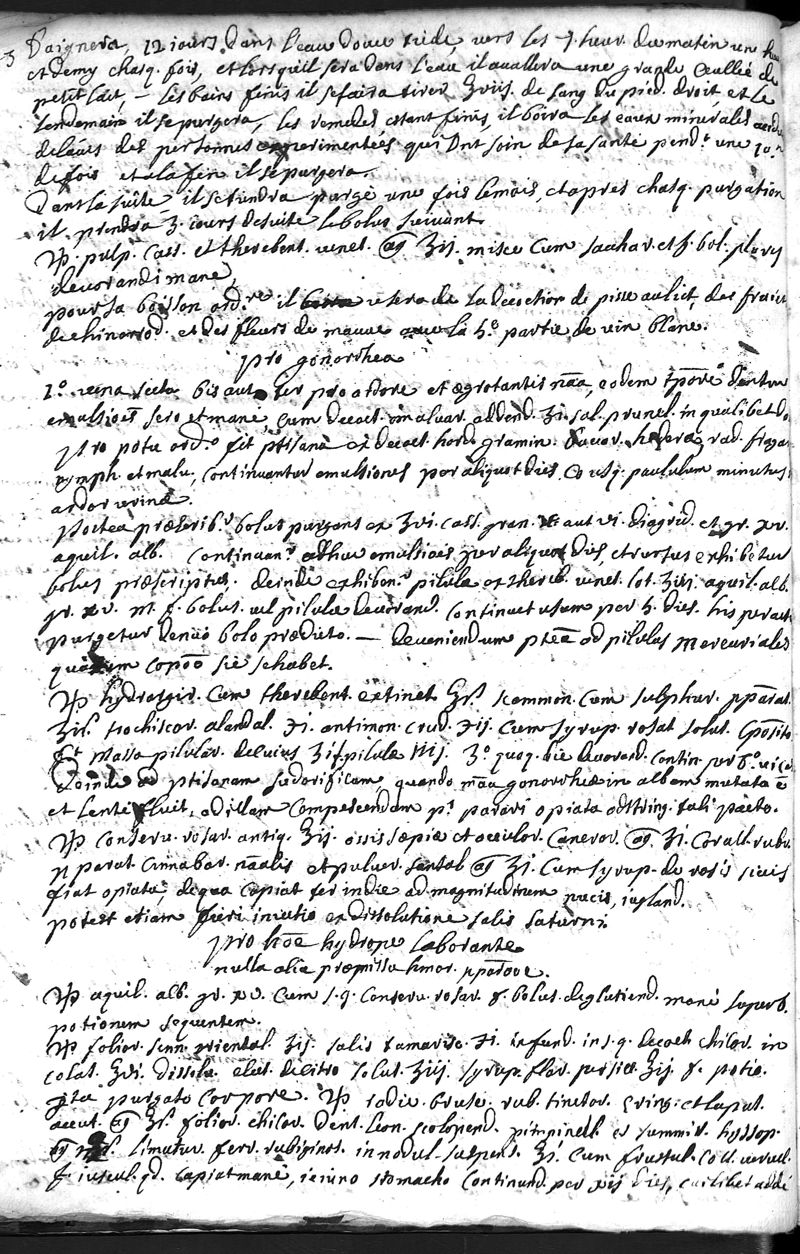 baignera, 12 jours dans l'eau douce tiede, vers les 7 heur. du matin une
et demy chasq. fois, et lorsqu'il sera dans l'eau il avallera une grande de
petit lait, – les bains finis il se faira tirer ʒviij. de sang du pied droit, et le
lendemain il se purgera, les remedes estant finis, il boira les eaux minerales
de l'avis des personnes experimentées qui ont soin de sa santé pend.t une
de fois et a la fin il se purgera.
Dans la suite il se tiendra purgé une fois le mois, et apres chasq. purgation
il prendra 3. jours de suite le bolus suivant
℞. pulp. cass. et therebent. venet. a͠a ʒij. misce cum sacchar. et f. bol. plures
devorandi mane
pour sa boisson ord.re il usera de la decoction de pisse au lict, des fraisi
de chinorrod. et des fleurs de mauve la 5.e partie de vin blanc.
pro gonorrhea
1.o vena secta bis aut ter pro ardore et ægrotantis n͠aa, eodem
emulsiões sero et mané cum decoct. malvar. addend. ʒi. sal. prunel. in qualibet do
pro potu ord.o fit ptisana ex decoct. hord. gramin. rad. fragar
nymph. et malv, continuantur emulsiones per aliquot dies, paululum minutus
ardor urinæ
Postea præscrib.r bolus purgens ex ʒvi. cass. gran. aut vi. diagrid. et gr. xv.
aquil. alb. continuan.r adhuc emulsiões per aliquot dies, et rursus exhibetur
bolus præscriptus. deinde exhiben.r pilulæ ex thereb. venet. lot. ʒiij. aquil. alb.
gr. xv. m. f. bolus. vel pilulæ devoran.r continuet usum per 5. dies. his peract
purgetur denuò bolo prædicto. — deveniendum pteâ ad pilulas mercuriales
quarum copõo sic se habet.
℞ hydrargir. cum therebent. extinct. scammon. cum sulphur. pparat.
trochiscor. alandal. ʒi. antimon. crud. ʒij. cum syrup. rosat. solut.
ft massa pilular. de cuius pilulæ iiij. 3.o quoq. die devorand. contin.
Deinde ad ptisanam sudorificam quando m͠aa gonorrhiæ in albam mutata e͠
et lentè fluit, ad illam compescendam p.t parari opiata adstring. tali pacto.
℞ conserv. rosar. antiq. ʒij. ossis sæpiæ et oculor. cancror. a͠a ʒi. corall. rubr
pparat. cinnabar. n͠aalis et pulver. santal a͠a ʒi. cum syrup. de rosis siccis
fiat opiata, de qua capiat ter in die ad magnitudinem nucis, iugland.
potest etiam fieri iniectio ex dissolutione salis saturni.
pro hõe hydrope laborante
nulla alia præmissa hmor. pparõoe.
℞ aquil. alb. gr. xv. cum s. q. conserv. rosar. f. bolus deglutiend. mané superb.
potionem sequentem.
℞ folior. senn. oriental. ʒij. salis tamarisc. ʒi. infund. in s. q. decoct. chicor. in
colat. ʒvi. dissolv. elect. de citro solut. ʒiij. syrup. flor. persicor. ʒij. f. potio.
pteâ purgato corpore. ℞ radic. brusc. rub. tinctor. ering. et lapat.
acut. a͠a folior. chicor. dent. leon. scolopend. pimpinell. et summit. hyssop.
a͠a limatur. ferr. rubiginos. in nodul. suspens. ʒi. cum frustul. coll. vervec.
f. iuscul. qd. capiat mané, ieiuno stomacho continuand. per xij dies, cuilibet adde